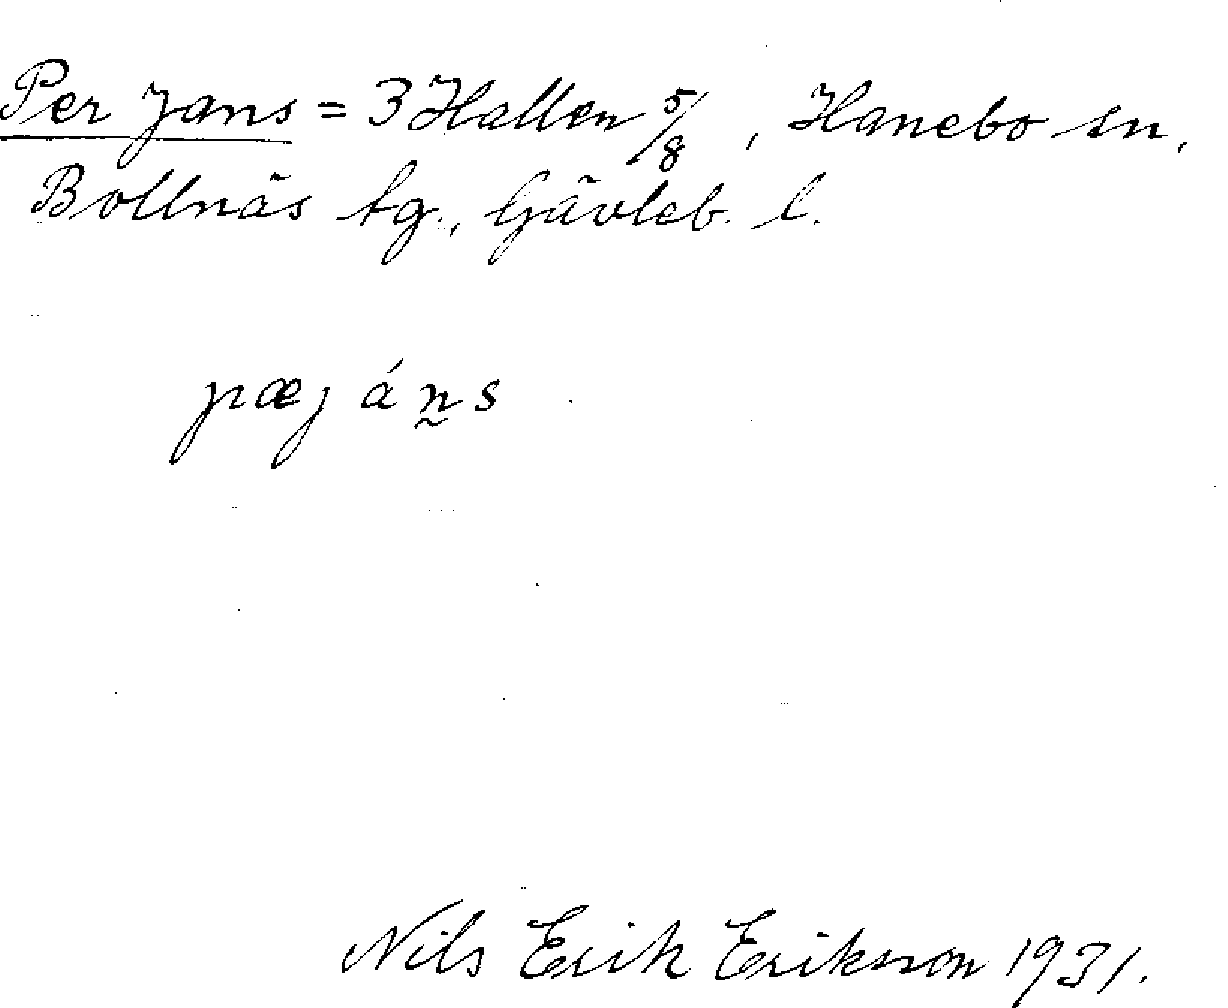 Per Jans = 3 Hallen 5/8, Hanebo sn,
Bollnäs tg., Gävleb. l.
pæján̰s
Nils Erik Eriksson 1931.